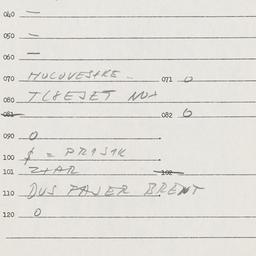 040 —
050 —
060 —
070 HULOVESIKE - 071 0
080 TL8EJET NUX
081 082 0
090 0
100 $ = PRJSJK
101 ZIAR 102
110 DUS PAJER BRENT
120 0